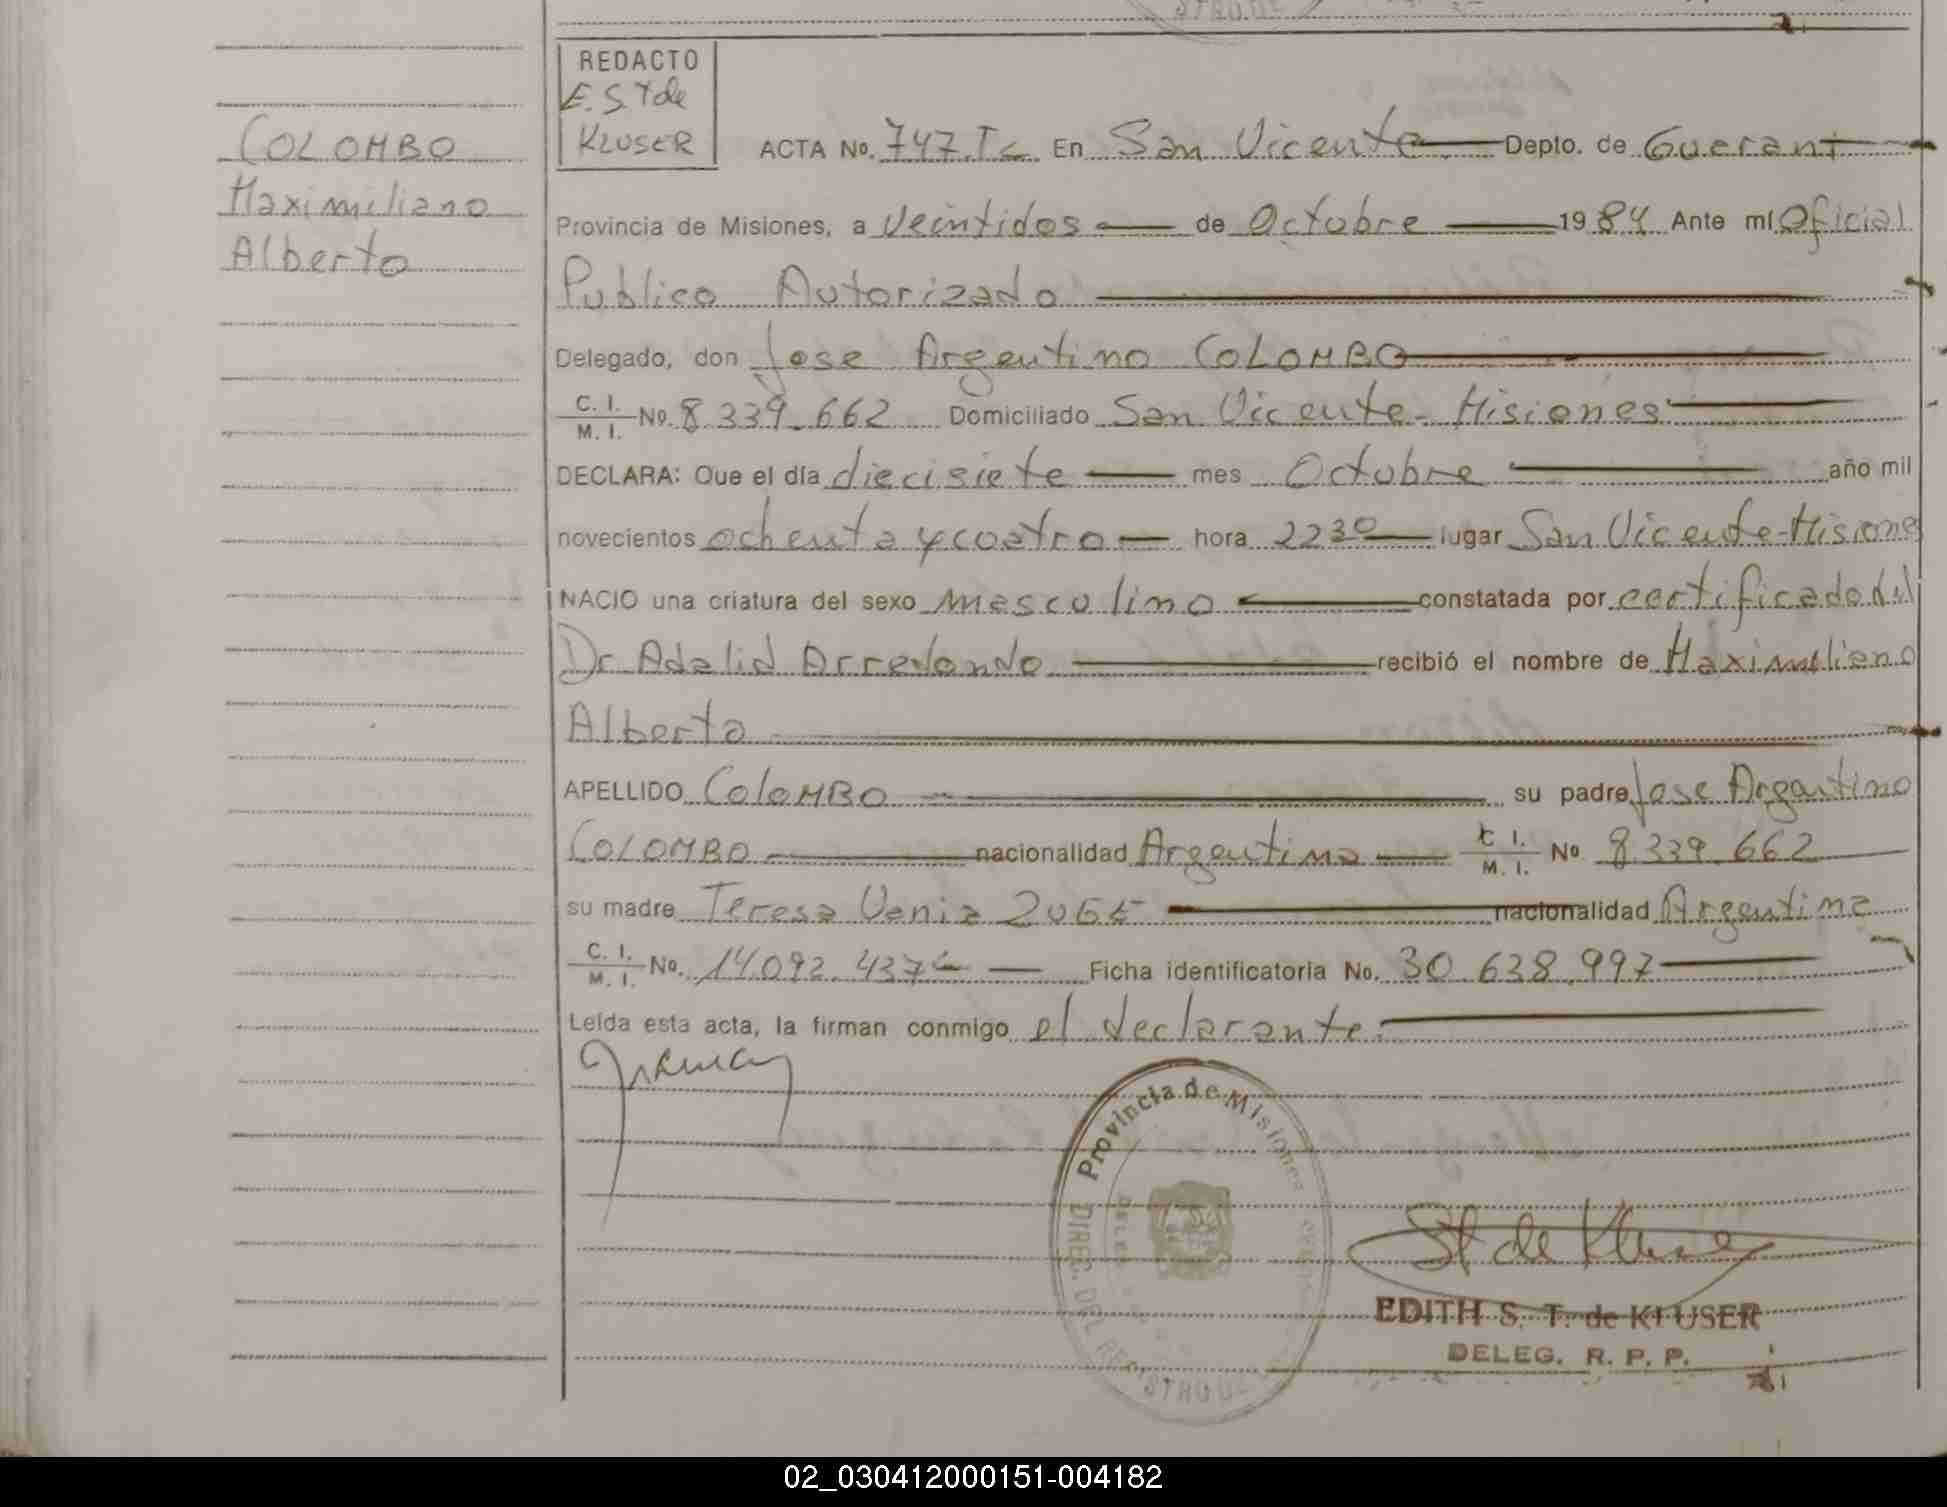 REDACTO
E. S. T de
KLUSER
COLOMBO
Maximiliano
Alberto
ACTA No. 747 T< En San Vicente Depto. de Guarani
Provincia de Misiones, a Veintidos de Octubre 1984 Ante mí Oficial
Publico Autorizado
Delegado, don Jose Argentino COLOMBO
C. I. M. I. No. 8.339.662 Domiciliado San Vicente - Misiones
DECLARA: Que el día diecisiete mes Octubre año mil
novecientos ochenta y cuatro hora 22 30 lugar San Vicente-Misiones
NACIO una criatura del sexo masculino constatada por certificado del
Dr Adalid Arredondo recibió el nombre de Maximiliano
Alberto
APELLIDO COLOMBO su padre Jose Argentino
COLOMBO nacionalidad Argentina C. I. M. I. No 8.339.662
su madre Teresa nacionalidad Argentina
C. I. M. I. No. 14.092.437 Ficha identificatoria No. 30.638.997
Leída esta acta, la firman conmigo el declarante.
Provincia de Misiones
DIREC. DEL REGISTRO
St de Kluser
EDITH S. T. de KLUSER
DELEG. R. P. P.
02_030412000151-004182